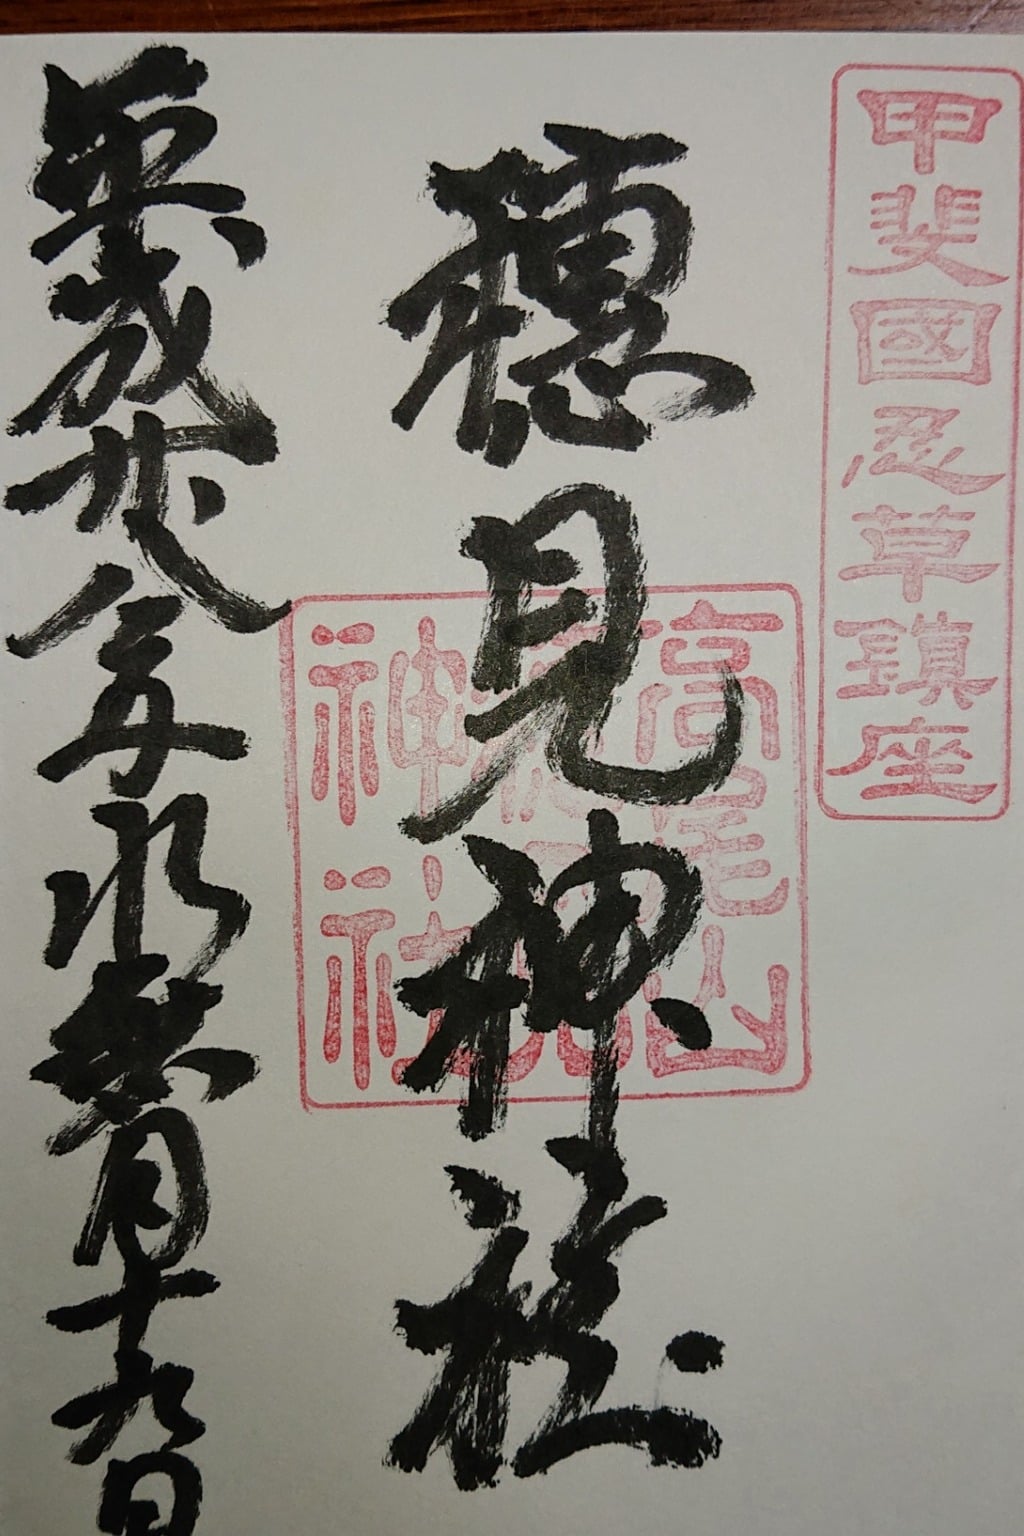 甲斐國忍草鎮座
穂見神社
高尾山
神社
平成廿八年水無月十九日